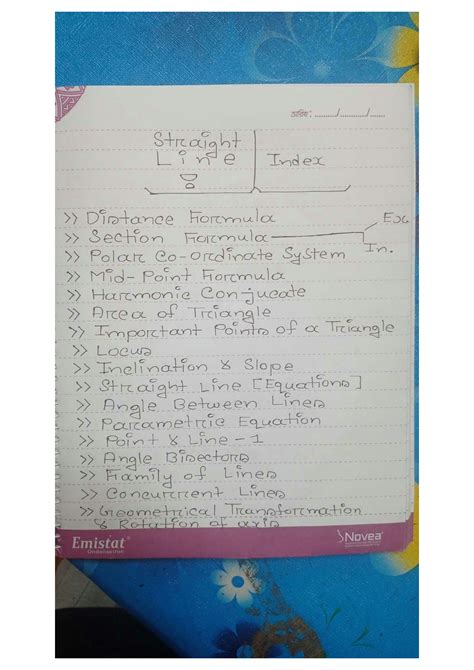 তারিখ: ............/............/............
Straight
Line
Index
>> Distance Formula
Ex.
>> Section Formula
In.
>> Polar Co-ordinate System
>> Mid-Point Formula
>> Harmonic Con-jucate
>> Area of Triangle
>> Important Points of a Triangle
>> Locus
>> Inclination & Slope
>> Straight Line [Equations]
>> Angle Between Lines
>> Parametric Equation
>> Point & Line - 1
>> Angle Bisectors
>> Family of Lines
>> Concurrent Lines
>> Geometrical Transformation
& Rotation of axis
Emistat®
Ondansetron
Novea